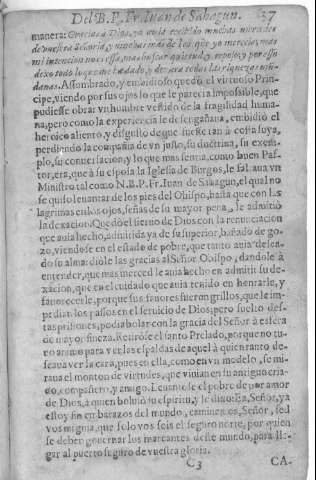 Del B. P. Fr. Iuan de Sahagun. 37
manera: Gracias a Dios, ya en la recibido muchas mercedes
de vuestra Señoria, y muchas mas de las que yo merecia, mas
mi intencion no es essa, mas buscar quietud, y reposo, y por esso
dexo todo lo que me ha dado, y dexara todas las riquezas mun-
danas. Assombrado, y embidioso quedò el virtuoso Prin-
cipe, viendo por sus ojos lo que le parecia impossible, que
pudiesse obrar vn hombre vestido de la fragilidad huma-
na, pero como la experiencia le desengañaua, embidiò el
heroico aliento, y disgustòse que fuesse tan à costa suya,
perdiendo la compañia de vn justo, su doctrina, su exem-
plo, su conuersacion, y lo que mas sentia, como buen Pas-
tor, era, que à su esposa la Iglesia de Burgos, le faltaua vn
Ministro tal como N. B. P. Fr. Iuan de Sahagun, el qual no
se quiso leuantar de los pies del Obispo, hasta que con las
lagrimas en los ojos, señas de su mayor pena, le admitiò
la dexacion. Quedò el sieruo de Dios con la renunciacion
que auia hecho, admitida ya de su superior, bañado de go-
zo, viendose en el estado de pobre, que tanto auia dessea-
do su alma: diòle las gracias al Señor Obispo, dandole à
entender, que mas merced le auia hecho en admitir su de-
xacion, que en el cuidado que auia tenido en honrarle, y
fauorecerle, porque sus fauores fueron grillos, que le im-
pedian los passos en el seruicio de Dios, pero suelto des-
tas prisiones, podia bolar con la gracia del Señor à esfera
de mayor fineza. Retiròse el santo Prelado, porque no tu-
uo animo para ver las espaldas de aquel à quien tanto des-
seaua ver la cara, pues en ella, como en vn modelo, se mi-
raua el monton de virtudes, que viuian en su antiguo cria-
do, compañero, y amigo. Leuantòse el pobre de por amor
de Dios, à quien boluiò su espiritu, y le dixo: Ea, Señor, ya
estoy sin embarazos del mundo, caminemos, Señor, sed
vos mi guia, que solo vos sois el seguro norte, por quien
se deben gouernar los mareantes deste mundo, para lle-
gar al puerto seguro de vuestra gloria.
C 3 CA-